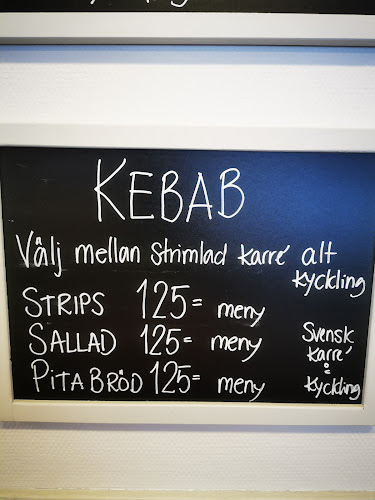 KEBAB
Välj mellan strimlad karré alt
kyckling
STRIPS 125= meny
SALLAD 125= meny
PITABRÖD 125= meny
Svensk
karré
&
kyckling